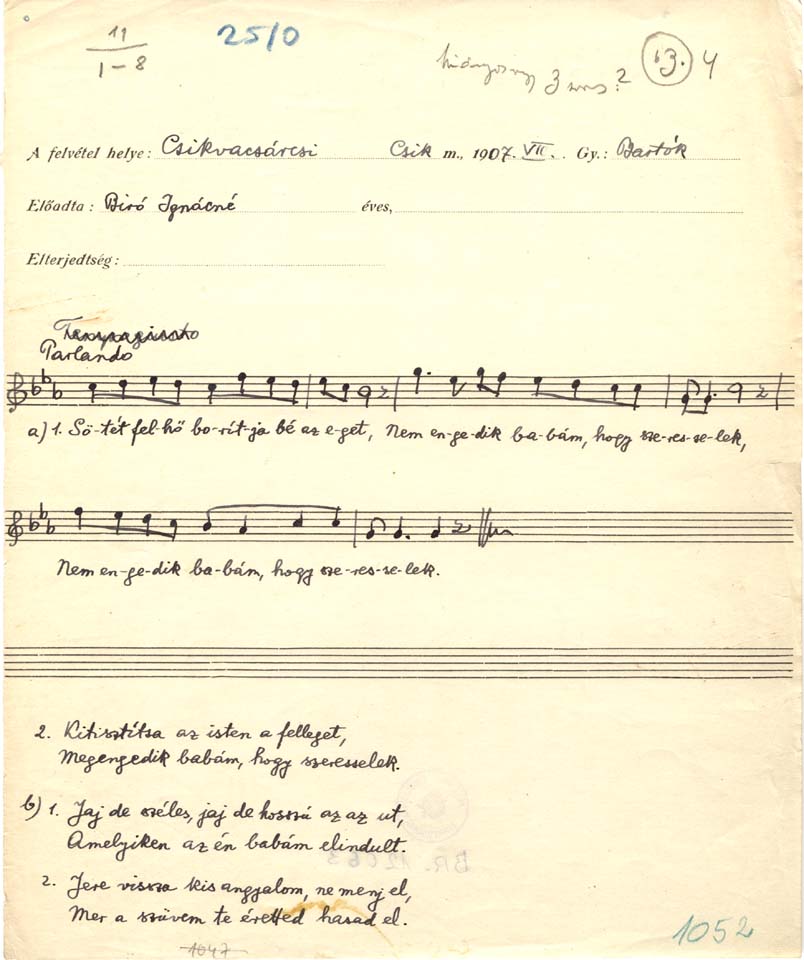 11
1–8
25/0
3 ? 13. 4
A felvétel helye: Csikvacsárcsi Csik m., 1907. VII. Gy.: Bartók
Előadta: Biró Ignácné éves,
Elterjedtség:
Parlando
a) 1. Sö-tét fel-hő bo-rít-ja bé az e-get, Nem en-ge-dik ba-bám, hogy sze-res-se-lek,
Nem en-ge-dik ba-bám, hogy sze-res-se-lek.
2. Kitisztítsa az isten a felleget,
Megengedik babám, hogy szeresselek.
b) 1. Jaj de széles, jaj de hosszú az az ut,
Amelyiken az én babám elindult.
2. Jere vissza kis angyalom, ne menj el,
Mer a szüvem te éretted hasad el.
BR. 12063
1047
1052